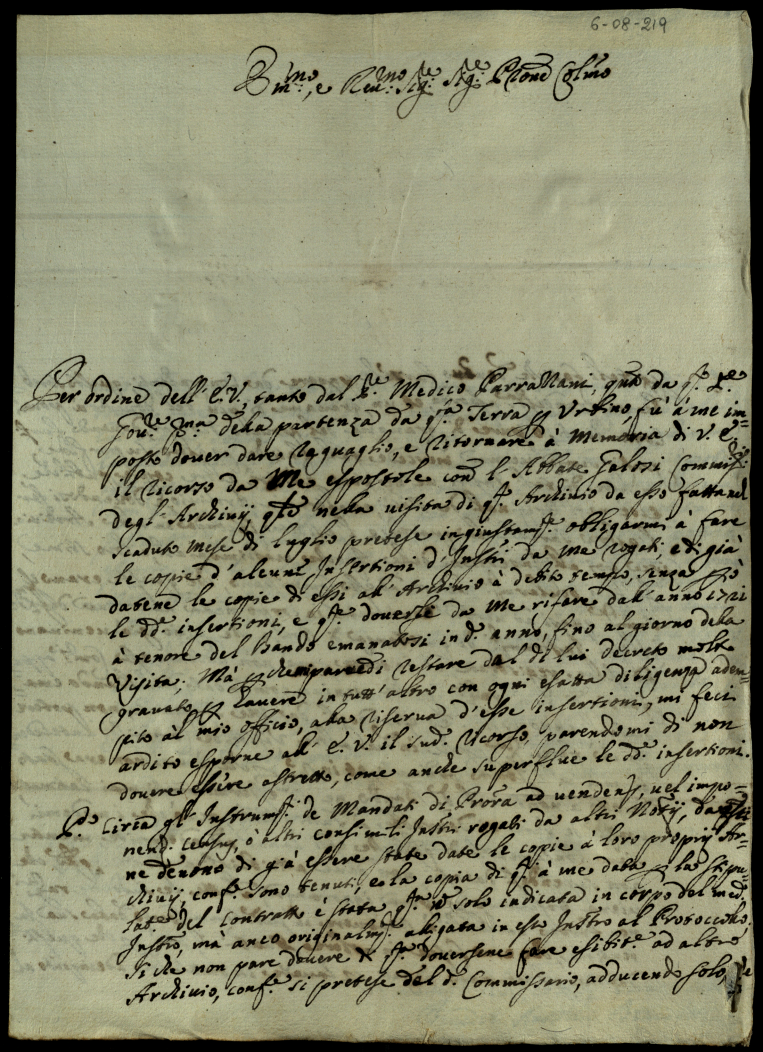 6-08-219
Em.mo, e Reu.mo Sig.re Sig.re P̃rone Col.mo
Per ordine dell' E. V., tanto dal S.re Medico Parravani, q̃to da q.sto S.re
Gou.re p.ma della partenza da q.sta Terra p Urbino, fù à me im=
posto douer dare raguaglio, e ritornare à Memoria di V. E.
il ricorso da Me espostole con l' Abbate Galosi Commiss.
degl' Archiuij, nella uisita di q.sto Archiuio da esso fatta nel
scaduto mese di luglio pretese ingiustam.te obligarmi à fare
le copie d'alcune Insertioni d'Instri da me rogati, e di già
datene le copie di essi all' Archiuio à debito tempo, senza però
le dd.e insertioni, e q.ste douersi da Me rifare dall' anno 1721
à tenore del bando emanatosi in d.o anno, fino al giorno della
Visita; Mà di restare dal di lui decreto molto
grauato, p hauere in tutt' altro con ogni esatta diligenza adem=
pito àl mio officio, alla riserua d'esse insertioni, mi feci
ardito esporne all' E. V. il sud.o ricorso, parendomi di non
douere essere astretto, come anche superflue le dd.e insertioni.
P.o Circa gl' Instrum.ti de Mandati di Procra ad uendend, uel impo=
nend. censu, ò altri consimili Instri rogati da altri Notij,
ne deuono di già essere state date le copie à loro proprij Ar=
chiuij, conf.e sono tenuti, e la copia di q.sti à me data p la stipu=
lat.e del Contratto è stata solo indicata in corpo del med.o
Instro, mà anco originalm.te alligata in esso Instro al Protocollo,
si che non pare douere di q.sti douersene fare esibit.e ad altro
Archiuio, conf.e si pretese dal d.o Commissario, adducendo solo,